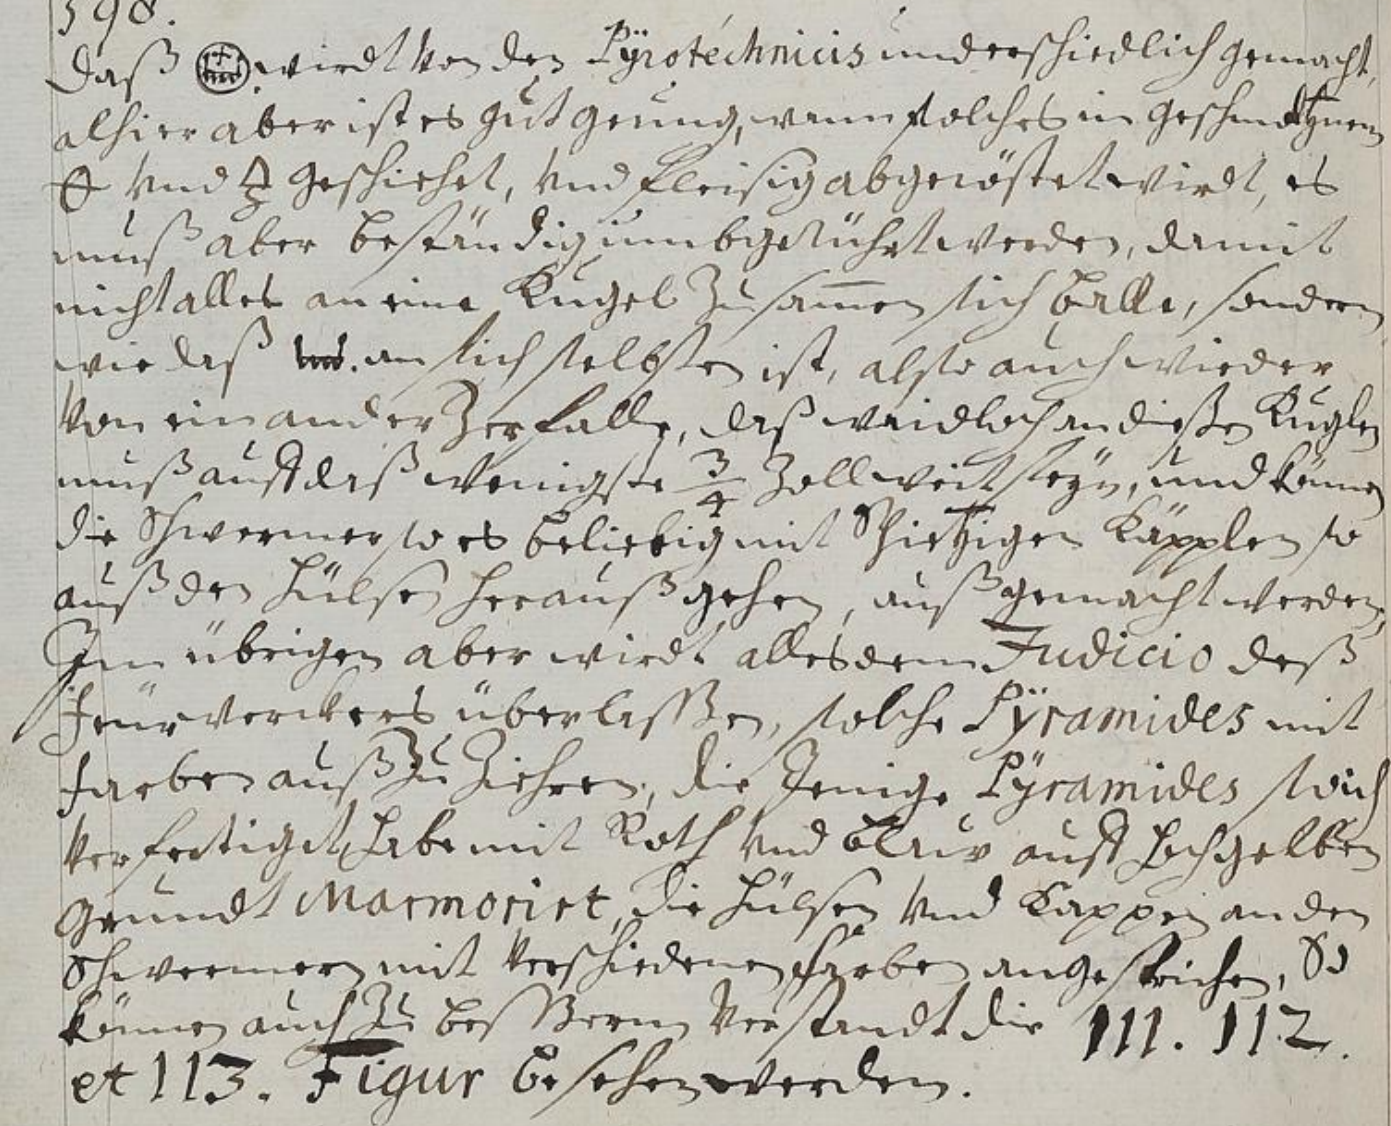 598.
Daß wirdt Von den Pÿrotéchnicis underschiedlich gemacht,
alhier aber ist es gut genung, wann solches in geschmeltzenem
Vnd geschiehet, Vnd fleisig abgeröstet wirdt, es
muß aber beständig umbgerührt werden, damit
nicht alles an eine Kugel Zusam̄en sich balle, sondern
wie daß an sich selbsten ist, also auch wieder
Von einander Zerfalle, daß waidloch an dießen Kuglen
muß auff daß wenigste 3/4 Zoll weit seÿn, und können
die Schwermer so es beliebig mit Spietzigen Käpplen so
auß den Hülsen herauß gehen, außgemacht werden,
Im übrigen aber wirdt alles dem Judicio deß
Feürwerckers überlaßßen, solche Pÿramides mit
farben auß Zu Ziehren, die Jenige Pÿramides so ich
Verfertiget, habe mit Roth Vnd blauw auff hochgelben
grundt Marmorirt, die Hülsen Vnd Kappen an den
Schwermern mit Verschiedenen farben angestrichen, So
können auch Zu beßßerm Verstandt die 111. 112.
et 113. Figur besehen werden.